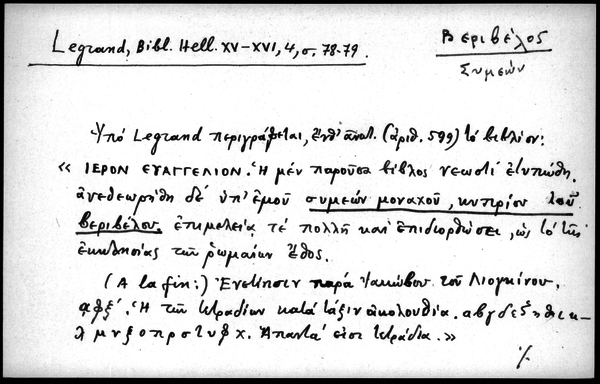 Legrand, Bibl. Hell. XV-XVI, 4, σ. 78-79.
Βεριβέλος
Συμεών
Ὑπό Legrand περιγράφεται, (ἀριθ. 599) τό βιβλίον:
« ΙΕΡΟΝ ΕΥΑΓΓΕΛΙΟΝ. Ἡ μέν παροῦσα βίβλος νεωστί ἐτυπώθη.
ἀνεθεωρήθη δέ ὑπ' ἐμοῦ συμεών μοναχοῦ, κυπρίου τοῦ
βεριβέλου. ἐπιμελεία τέ πολλῆ καί ἐπιδιορθώσει, ὡς τό τῆς
ἐκκλησίας τῶν ῥωμαίων ἔθος.
(A la fin:) Ἐνετίησιν παρά Ἰακώβου τοῦ Λιογκίνου.
αφξ΄. Ἡ τῶν τετραδίων κατά τάξιν ἀκολουθία. αβγδεζηθικ-
λμνξοπρστυφχ. Ἅπαντά εἰσι τετράδια. »
./.